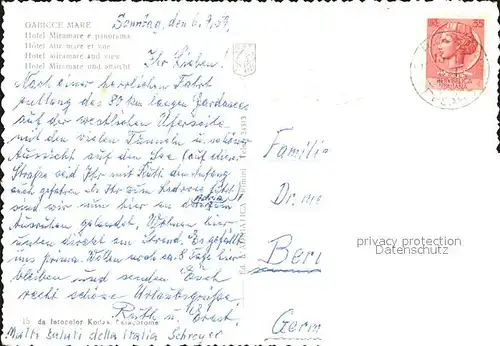 GABICCE MARE
Hotel Miramare e panorama
Hôtel Miramare et vue
Hotel Miramare and view
Hotel Miramare und ansicht
Sonntag, den 6.9.59,
Ihr Lieben!
Nach einer herrlichen Fahrt
entlang des 80 km langen Gardasees
auf der westlichen Uferseite
mit den vielen Tunneln u. schöner
Aussicht auf den See (auf dieser
Straße seid Ihr mit Ruth am Anfang
auch gefahren als Ihr zum Ledrosee fuhrt)
sind wir nun hier an der Adria zum
Ausruhen gelandet. Wohnen hier
unten direkt am Strand. Es gefällt
uns prima. Wollen noch ca. 8 Tage hier
bleiben und senden Euch
recht schöne Urlaubsgrüße,
Ruth u. Ernst.
da fotocolor Kodak Ektachrome
Molti Saluti della Italia Schreyer
Rimini
Familie
Dr. me
Berl
Germ
privacy protection
Datenschutz